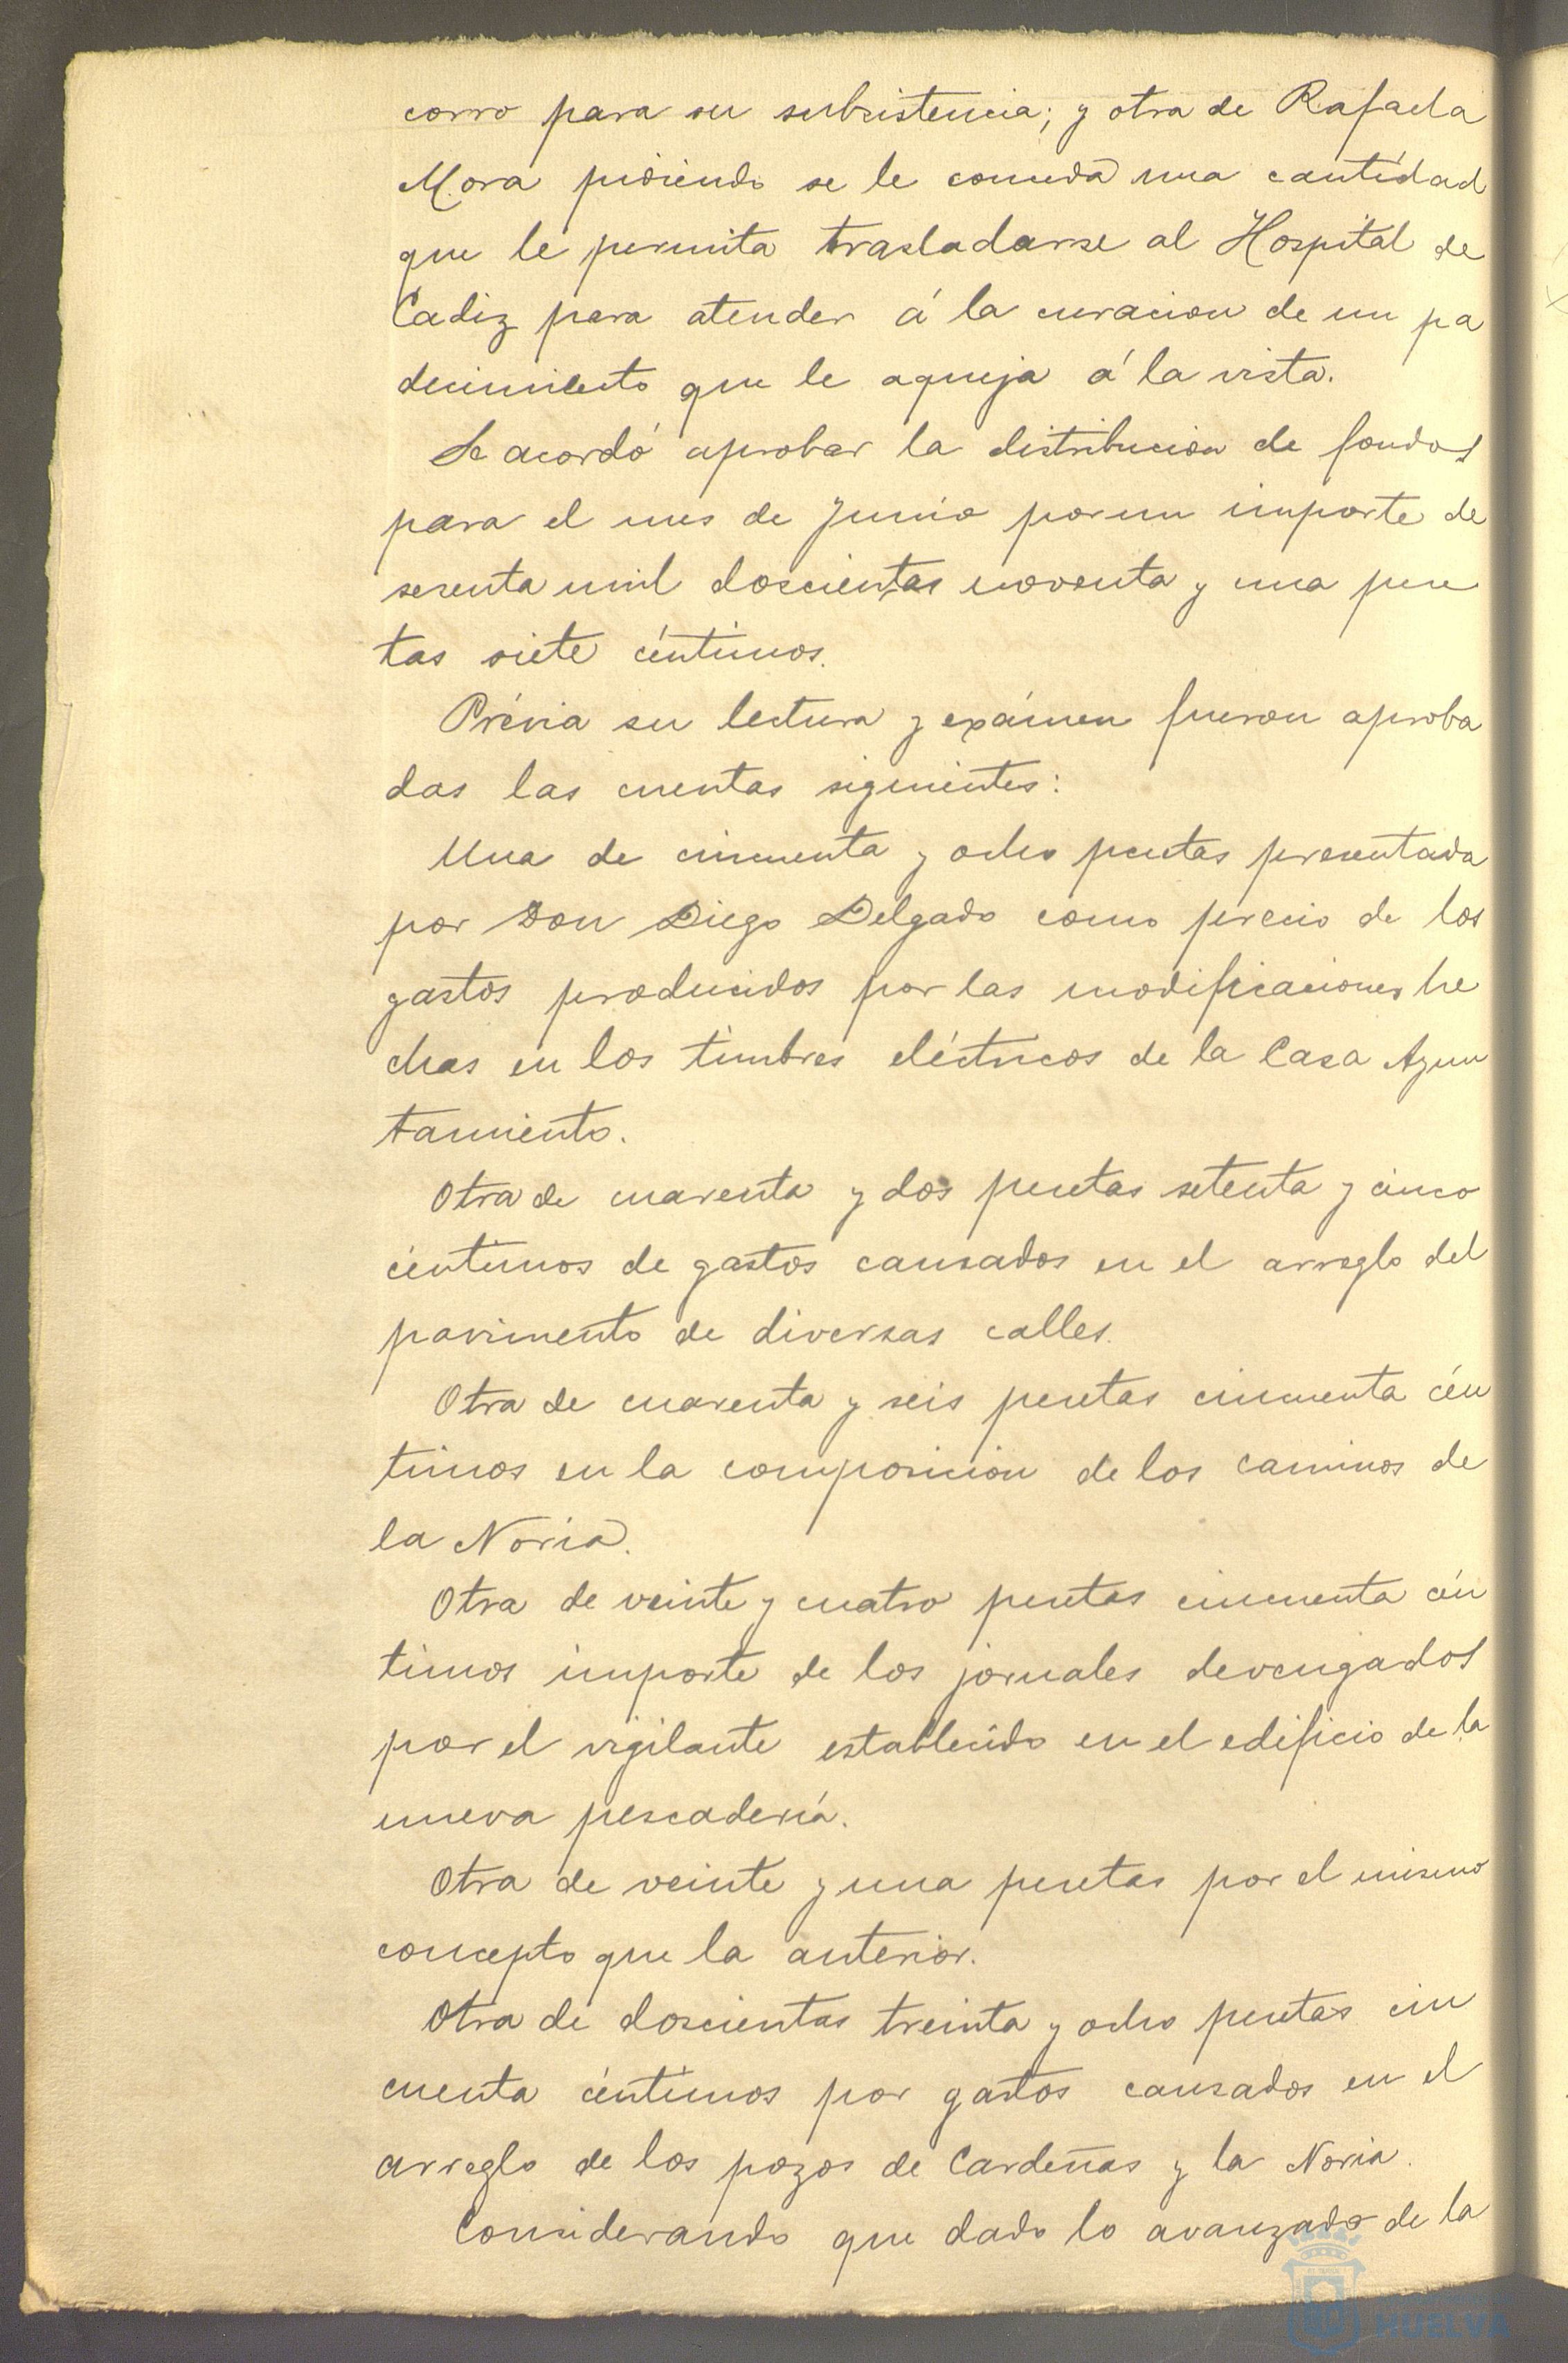 corro para su subsistencia; y otra de Rafaela
Mora pidiendo se le conceda una cantidad
que le permita trasladarse al Hospital de
Cadiz para atender á la curacion de un pa
decimiento que le aqueja á la vista.
Se acordó aprobar la distribucion de fondos
para el mes de Junio por un importe de
sesenta mil doscientas noventa y una pese
tas siete céntimos.
Prévia su lectura y exámen fueron aproba
das las cuentas siguientes:
Una de cincuenta y ocho pesetas presentada
por Don Diego Delgado como precio de los
gastos producidos por las modificaciones he
chas en los timbres eléctricos de la Casa Ayun
tamiento.
Otra de cuarenta y dos pesetas setenta y cinco
céntimos de gastos causados en el arreglo del
pavimento de diversas calles.
Otra de cuarenta y seis pesetas cincuenta cén
timos en la composicion de los caminos de
la Noria.
Otra de veinte y cuatro pesetas cincuenta cén
timos importe de los jornales devengados
por el vigilante establecido en el edificio de la
nueva pescadería.
Otra de veinte y una pesetas por el mismo
concepto que la anterior.
Otra de doscientas treinta y ocho pesetas cin
cuenta céntimos por gastos causados en el
arreglo de los pozos de Cardeñas y la Noria.
Considerando que dado lo avanzado de la
HUELVA